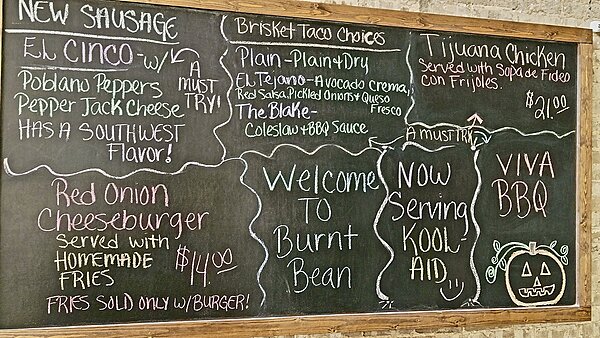 NEW SAUSAGE
EL CINCO - w/
Poblano Peppers
Pepper Jack Cheese
HAS A SOUTHWEST
Flavor!
A
MUST
TRY!
Brisket Taco Choices
Plain - Plain & Dry
EL Tejano - Avocado crema,
Red Salsa, Pickled Onions & Queso
Fresco
The Blake -
Coleslaw & BBQ Sauce
Tijuana Chicken
Served with Sopa de Fideo
con Frijoles.
$21.00
A MUST TRY
Red Onion
Cheeseburger
Served with
HOMEMADE
FRIES
$14.00
FRIES SOLD ONLY W/BURGER!
Welcome
TO
Burnt
Bean
NOW
Serving
KOOL-
AID
VIVA
BBQ